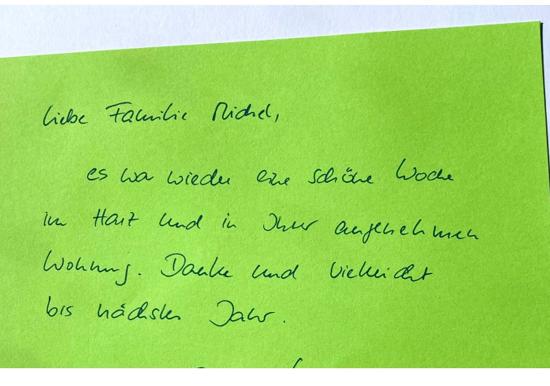 Liebe Familie Michel,
es war wieder eine schöne Woche
im Harz und in Ihrer angenehmen
Wohnung. Danke und vielleicht
bis nächstes Jahr.